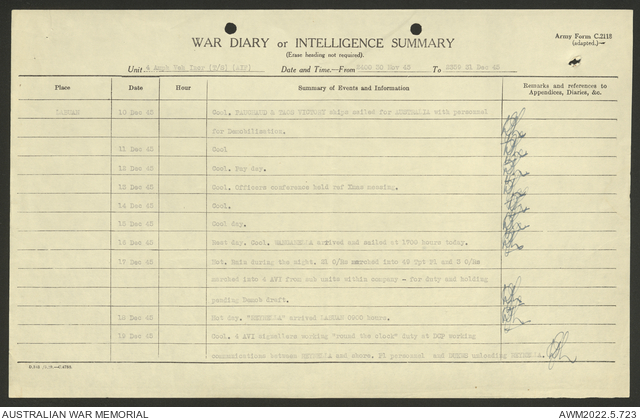 Army Form C.2118
(adapted.)
WAR DIARY or INTELLIGENCE SUMMARY
(Erase heading not required).
Unit 4 Date and Time.—From 0600 Nov 45 To 2359 31 Dec 45
Place Day Hour Summary of Events and Information Remarks and references to Appendices, Diaries, &c.
LABUAN 10 Dec 45 Cool. & ships sailed for AUSTRALIA with personnel
for Demobilization.
11 Dec 45 Cool
12 Dec 45 Cool. Pay day.
13 Dec 45 Cool. Officers conference held ref Xmas messing.
14 Dec 45 Cool.
15 Dec 45 Cool day.
16 Dec 45 Rest day. Cool. arrived and sailed at 1700 hours today.
17 Dec 45 Hot. Rain during the night. 21 O/Rs marched into Tpt Pl and 5 O/Rs
marched into 4 AVI from sub units within company - For duty and holding
pending Demob Draft.
18 Dec 45 Hot day. arrived LABUAN 0900 hours.
19 Dec 45 Cool. 4 AVI signallers working "round the clock" duty at working
communications between and shore. Pl personnel and unloading
AUSTRALIAN WAR MEMORIAL
AWM2022.5.723